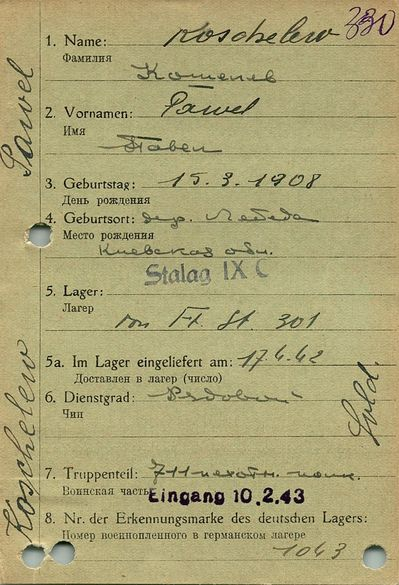 330
1. Name: Koschelew
Фамилия Кошелев
2. Vornamen: Pawel
Имя Павел
3. Geburtstag: 15. 3. 1908
День рождения
4. Geburtsort: дер. Лебеда
Место рождения
Киевская обл.
Stalag IX C
5. Lager:
Лагер von Ft. St. 301
5a. Im Lager eingeliefert am: 17.4.42
Доставлен в лагер (число)
6. Dienstgrad: Рядовой
Чип
Sold.
7. Truppenteil: 711 пехотн. полк.
Воинская часть Eingang 10.2.43
8. Nr. der Erkennungsmarke des deutschen Lagers:
Номер военнопленного в германском лагере
1043
Koschelew Pawel